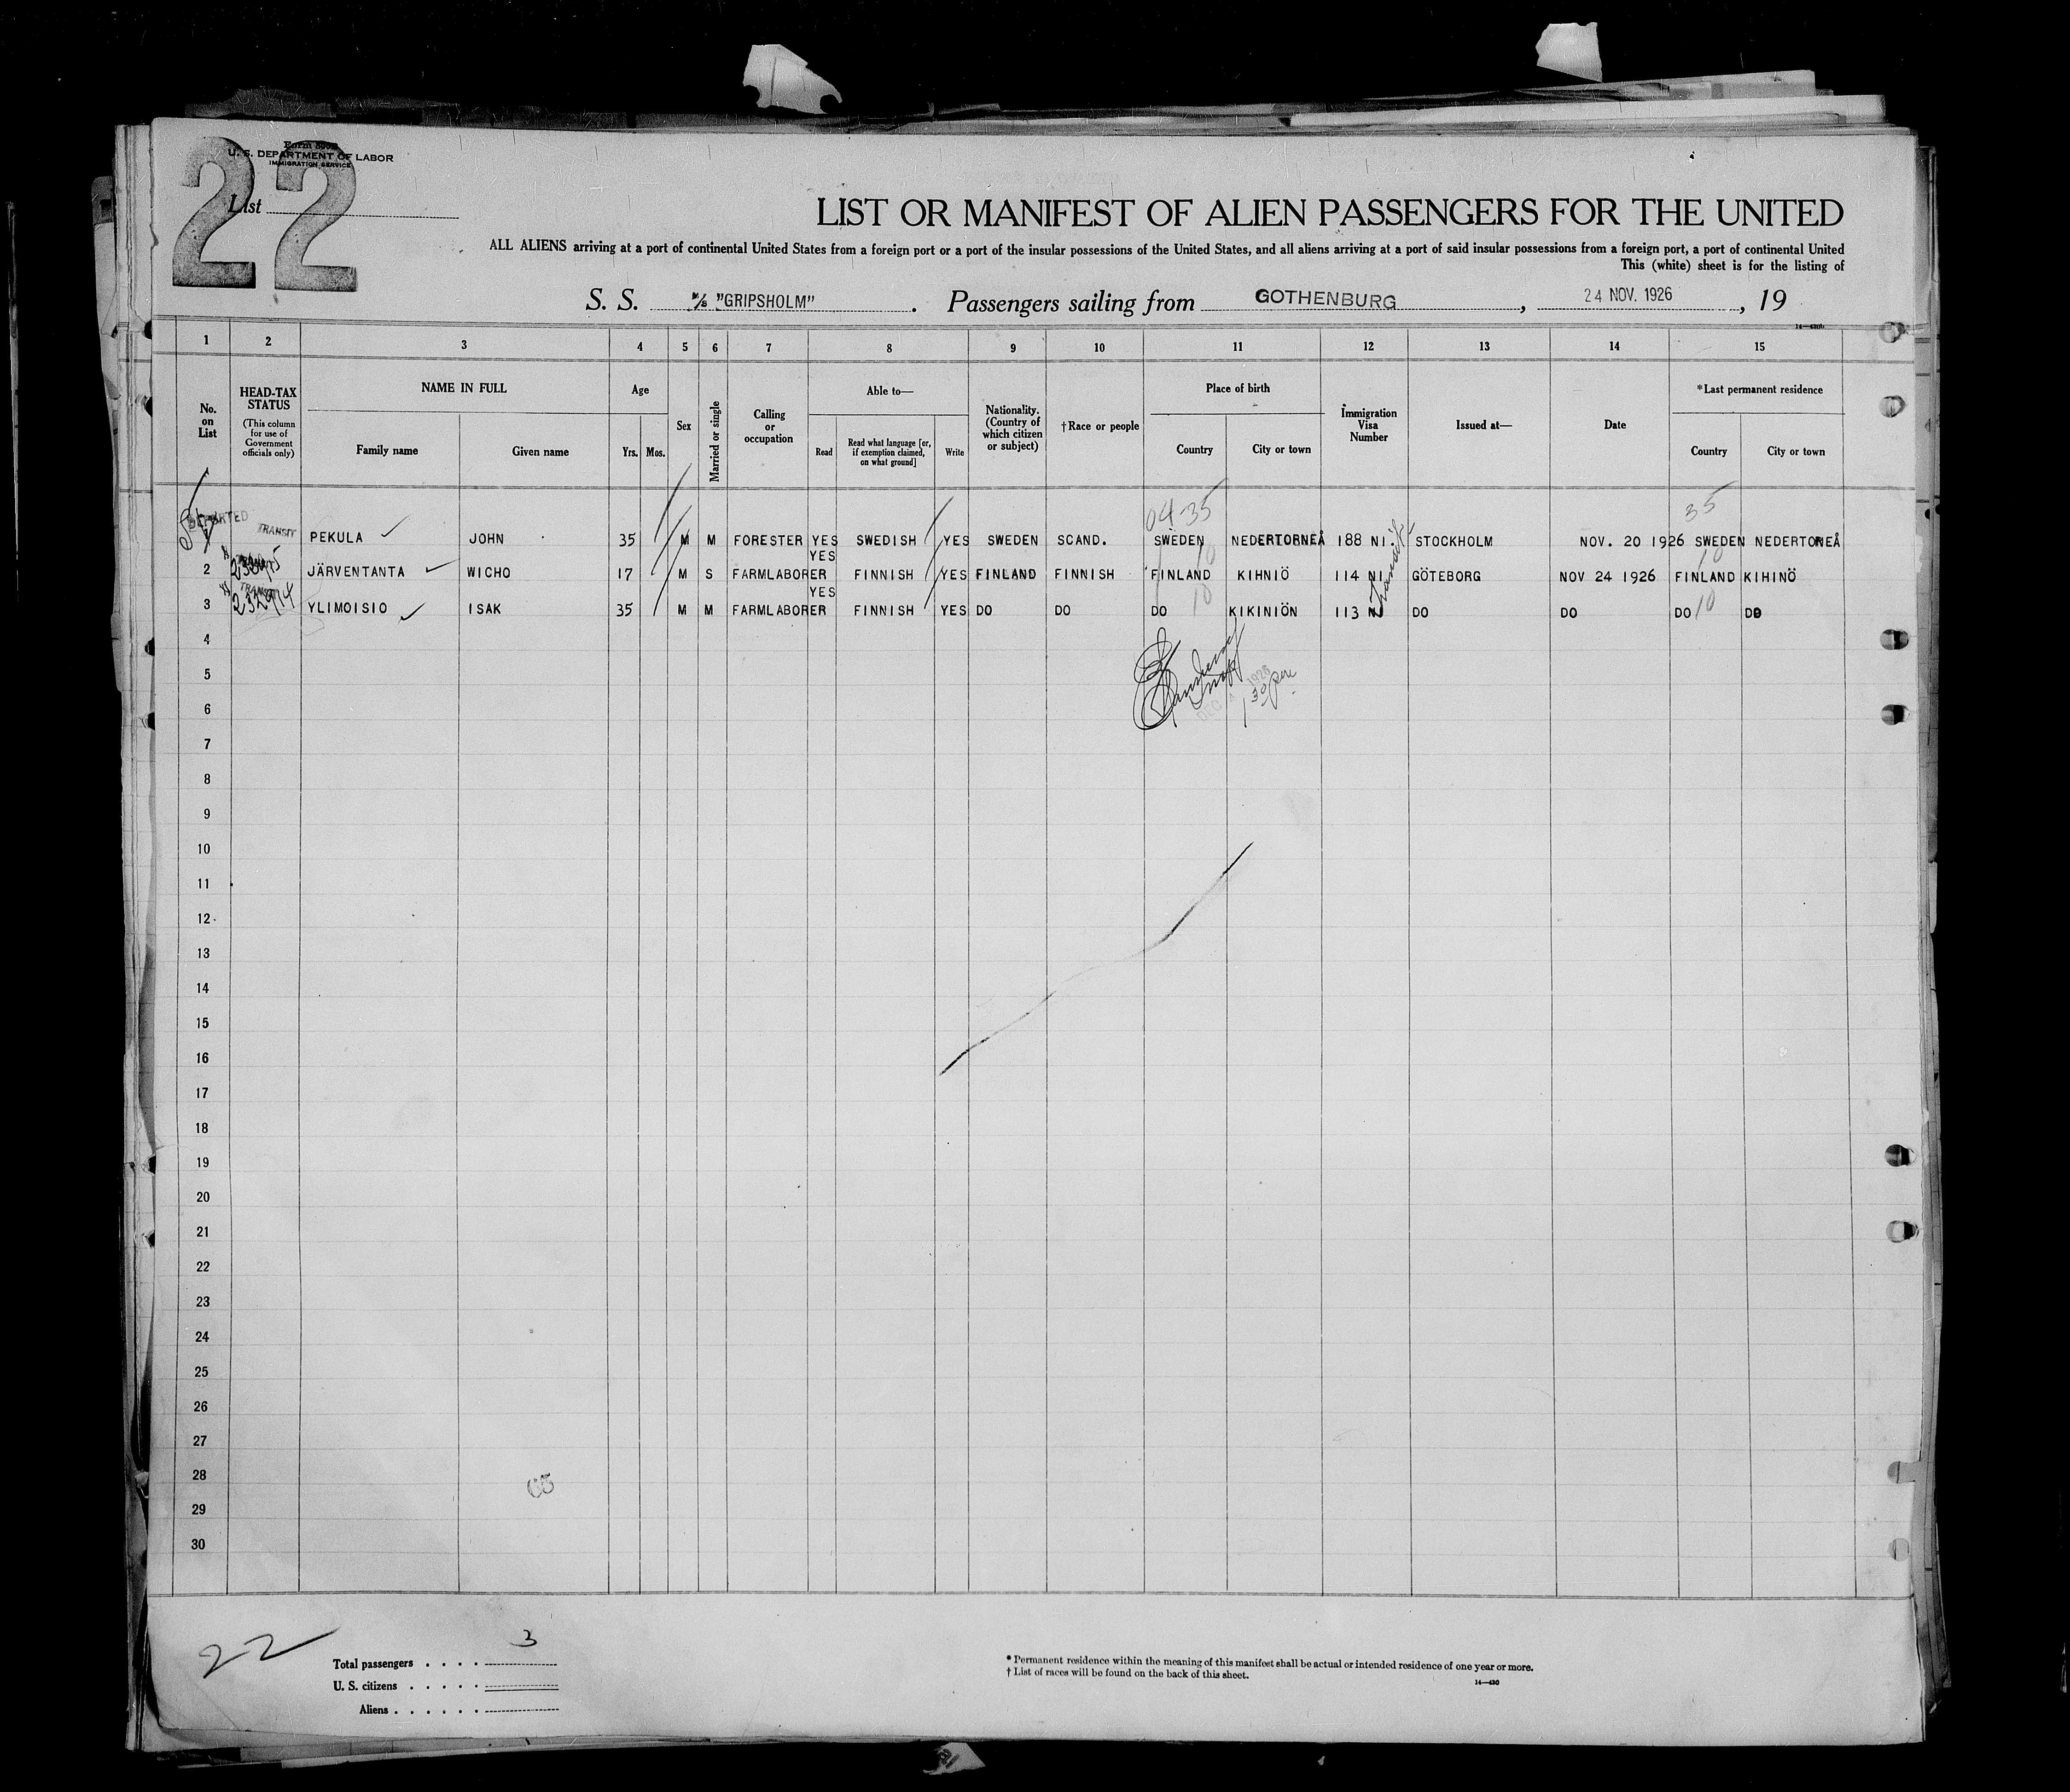 22
Form 500
U. S. DEPARTMENT OF LABOR
IMMIGRATION SERVICE
List
LIST OR MANIFEST OF ALIEN PASSENGERS FOR THE UNITED
ALL ALIENS arriving at a port of continental United States from a foreign port or a port of the insular possessions of the United States, and all aliens arriving at a port of said insular possessions from a foreign port, a port of continental United
This (white) sheet is for the listing of
S. S. M/S "GRIPSHOLM". Passengers sailing from GOTHENBURG, 24 NOV. 1926, 19
1 2 3 4 5 6 7 8 9 10 11 12 13 14 15
No. on List
HEAD-TAX STATUS
(This column for use of Government officials only)
NAME IN FULL
Family name Given name
Age
Yrs. Mos.
Sex
Married or single
Calling or occupation
Able to—
Read
Read what language [or, if exemption claimed, on what ground]
Write
Nationality. (Country of which citizen or subject)
†Race or people
Place of birth
Country City or town
Immigration Visa Number
Issued at—
Date
*Last permanent residence
Country City or town
04 35 35
DEPARTED TRANSIT PEKULA JOHN 35 M M FORESTER YES SWEDISH YES SWEDEN SCAND. SWEDEN NEDERTORNEÅ 188 NI. STOCKHOLM NOV. 20 1926 SWEDEN NEDERTORNEÅ
YES 10 10
2 JÄRVENTANTA WICHO 17 M S FARMLABORER FINNISH YES FINLAND FINNISH FINLAND KIHNIÖ 114 NI GÖTEBORG NOV 24 1926 FINLAND KIHINÖ
TRANSIT YES 10
3 232974 YLIMOISIO ISAK 35 M M FARMLABORER FINNISH YES DO DO DO KIKINIÖN 113 NI DO DO DO 10 DO
Transit
4
5
DEC 1926
1 30 pm
6
7
8
9
10
11
12
13
14
15
16
17
18
19
20
21
22
23
24
25
26
27
28
29
30
22
3
Total passengers
U. S. citizens
Aliens
* Permanent residence within the meaning of this manifest shall be actual or intended residence of one year or more.
† List of races will be found on the back of this sheet.
14—430